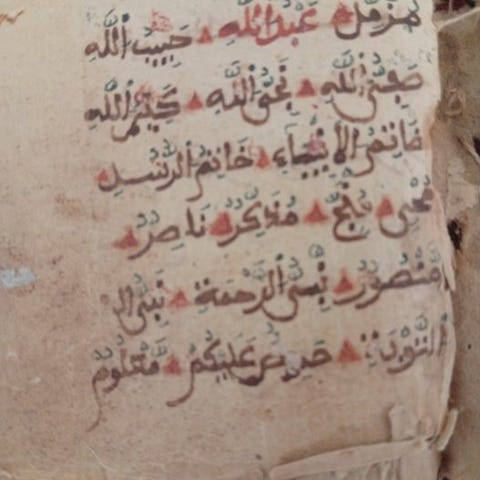 مُزَّمِّلٌ عَبْدُ اللَّهِ حَبِيبُ اللَّهِ
صَفِيُّ اللَّهِ نَجِيُّ اللَّهِ كَلِيمُ اللَّهِ
خَاتِمُ الْأَنْبِيَاءِ خَاتِمُ الرُّسُلِ
مُحْيٍ مُنَجٍّ مُذَكِّرٌ نَاصِرٌ
مَنْصُورٌ نَبِيُّ الرَّحْمَةِ نَبِيُّ ال
التَّوْبَةِ حَرِيصٌ عَلَيْكُمْ مَعْلُومٌ